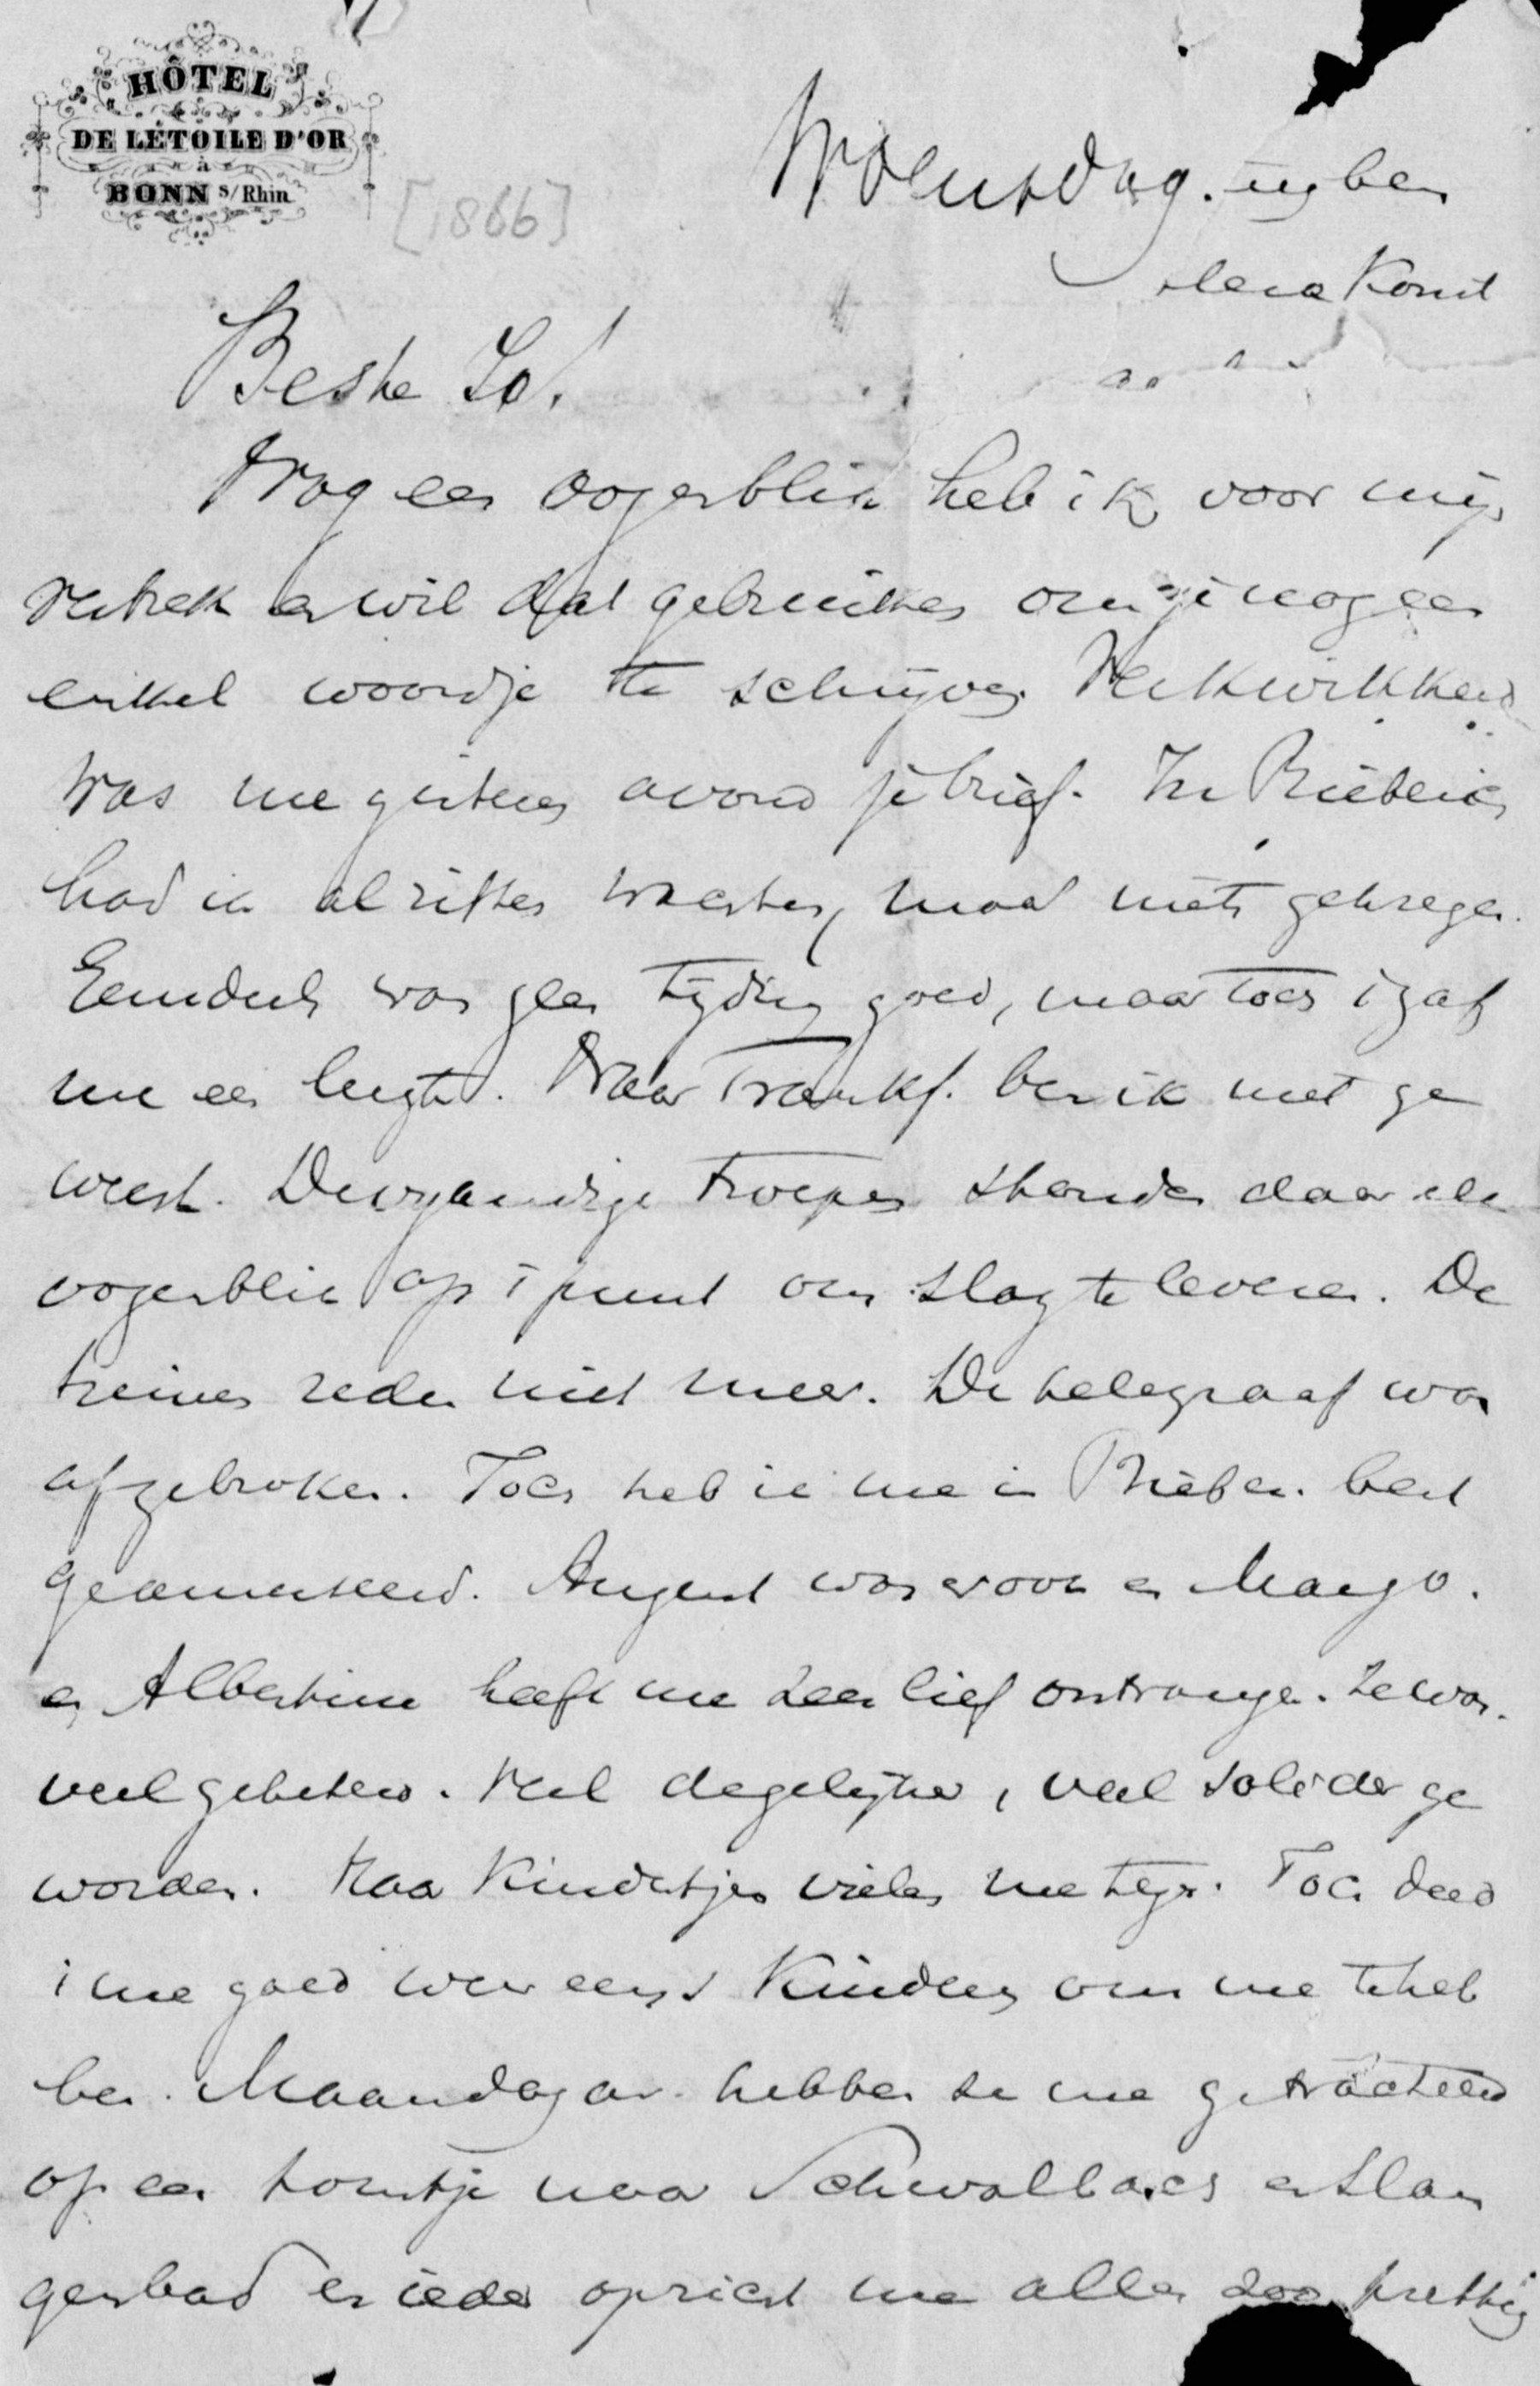 HÔTEL
DE L'ÉTOILE D'OR
à
BONN s/Rhin
[1866]
Woensdag.
Beste Jo!
Nog een oogenblik heb ik voor mijn
vertrek en wil dat gebruiken om je nog een
enkel woordje te schrijven. Verkwikkend
was me gisteren avond je brief. In Biebrich
had ik al zitten wachten, maar niets gekregen.
Eensdeels was geen tijding goed, maar toen 't gaf
me een lugt. Naar Frankf. ben ik niet ge
weest. De vyandige troepen stonden daar elk
oogenblik op 't punt om slag te leveren. De
treinen reden niet meer. De telegraaf was
afgebroken. Toen heb ik me in Biebr. best
geamuseerd. August was er ook en Margo.
en Albertine heeft me zeer lief ontvangen. Ze was
veel gebeterd. Veel degelijker, veel solider ge
worden. Haar kindertjes vielen me tegen. Toch deed
't me goed weer eens kinderen om me te heb
ben. Maandag av. hebben ze me getracteerd
op een toertje naar Schwalbach en Slan
genbad en ieder opzicht me alles zoo prettig